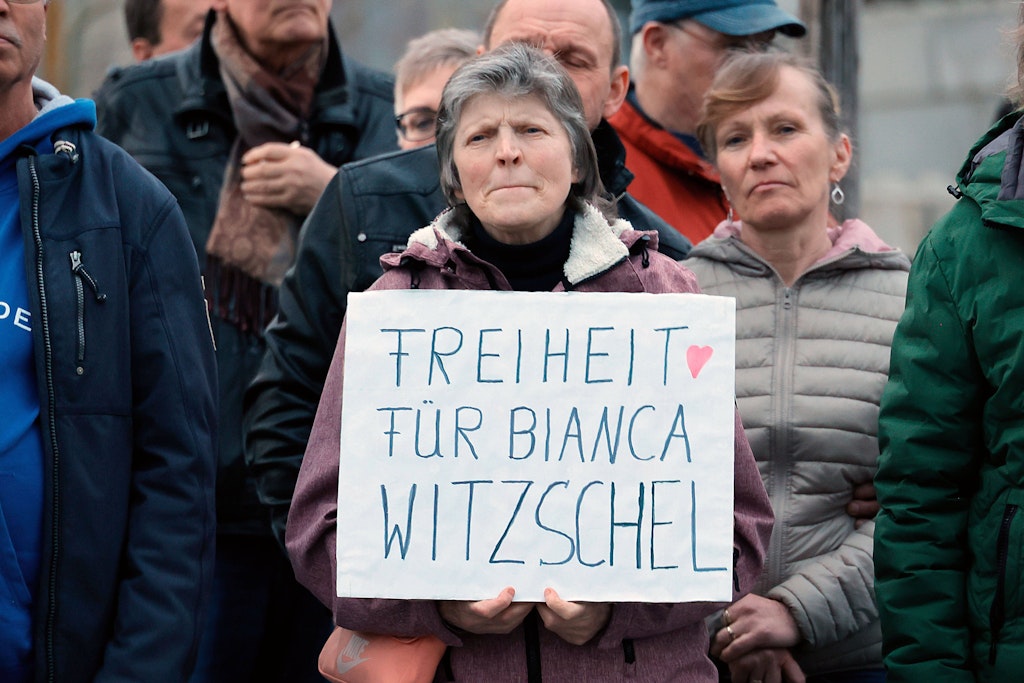 FREIHEIT
FÜR BIANCA
WITZSCHEL
DE